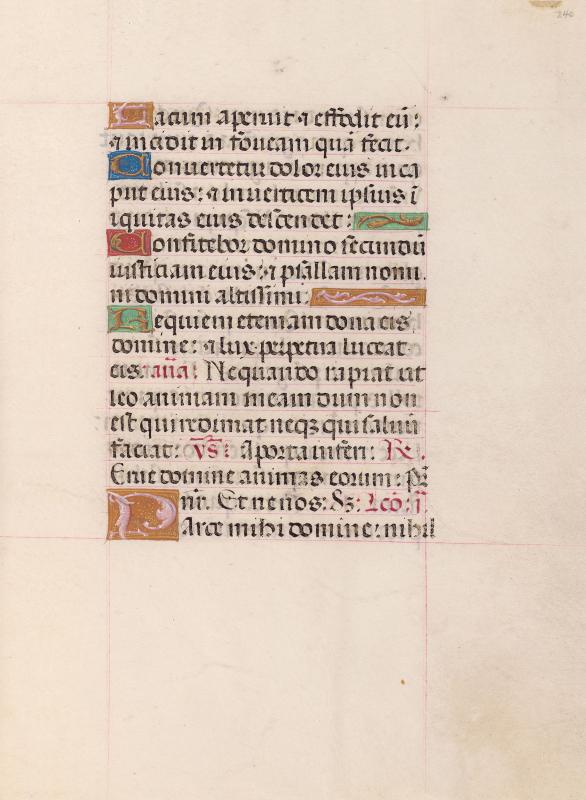 240
Lacum aperuit ⁊ effodit eū:
⁊ incidit in foueam quā fecit.
Conuertetur dolor eius in ca
put eius: ⁊ in uerticem ipsius ī
iquitas eius descendet:
Confitebor domino secundū
iusticiam eius: ⁊ psallam nomi
ni domini altissimi:
Requiem eternam dona eis
domine: ⁊ lux perpetua luceat
eis: aña: Nequando rapiat ut
leo animam meam dum non
est qui redimat neqȝ qui saluū
faciat: v̄s: A porta inferi: R̄e.
Erue domine animas eorum: p̄r
nr̄. Et ne nos: Sȝ: Lcō: ī
Parce mihi domine: nihil